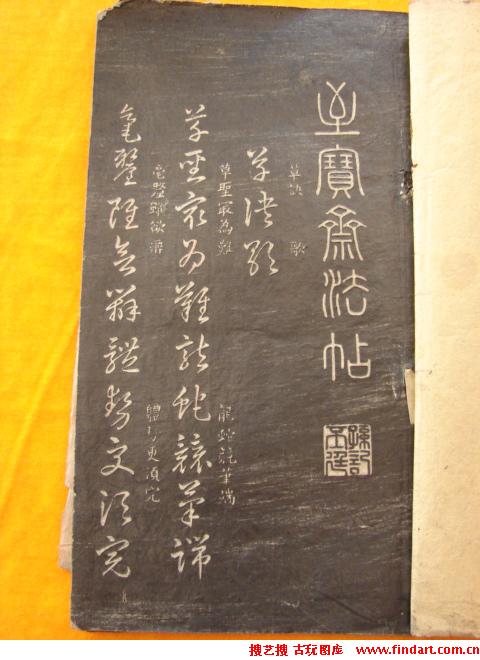 至寶齋法帖
草訣 歌
草訣歌
草聖最為難 龍蛇競筆端
草聖最為難龍蛇競筆端
毫釐雖欲辨 體勢更須完
毫釐雖欲辨體勢更須完
搜艺搜 古玩图库 www.findart.com.cn